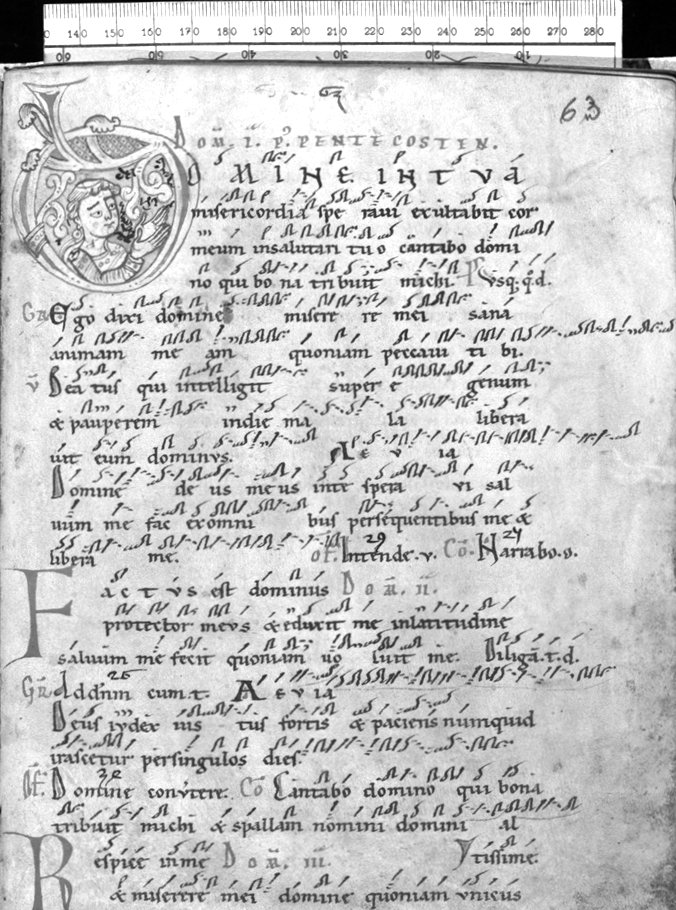 63
DOM̄. I. P̊ PENTECOSTEN.
DOMINE IN TUA
misericordia spe raui exultabit cor
meum insalutari tuo cantabo domi
no qui bona tribuit michi. Ps Usq; q̊d.
GR Ego dixi domine misere re mei sana
animam me am quoniam peccaui ti bi.
v̄ Bea tus qui intelligit super e genum
& pauperem in die ma la libera
uit eum dominus. Ae u ia
Domine de us me us inte spera vi sal
uum me fac exomni bus persequentibus me &
libera me. of. Intende. v. Co Narrabo. o.
Factus est dominus Dom̄. ii.
protector meus & eduxit me inlatitudine
saluum me fecit quoniam uo luit me. Diligā. t. d.
GR Ad dn̄m cum. t. Aeuia
Deus iudex ius tus fortis & paciens numquid
irascetur persingulos dies.
of. Domine conuertere. Co Cantabo domino qui bona
tribuit michi & spallam nomini domini al
Respice inme Dom̄. iii. ytissime.
& miserere mei domine quoniam unicus